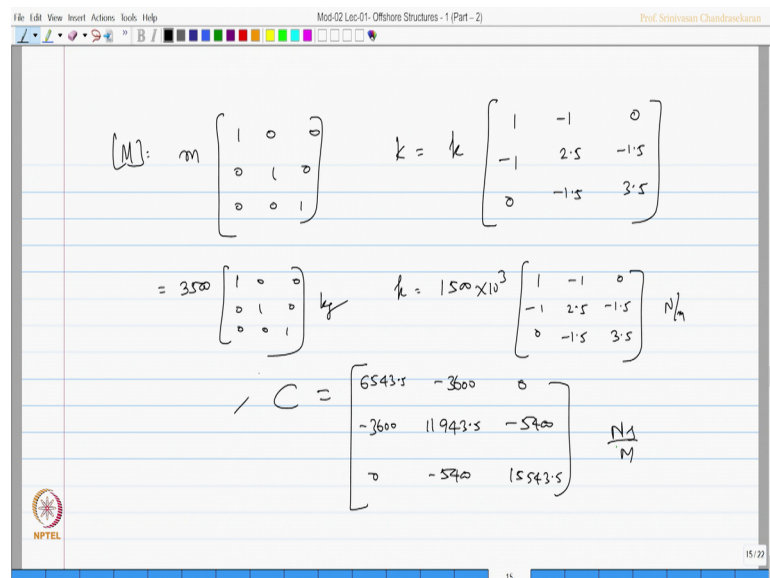 File Edit View Insert Actions Tools Help
Mod-02 Lec-01- Offshore Structures - 1 (Part – 2)
Prof. Srinivasan Chandrasekaran
B I
[M]: m [1 0 0
0 1 0
0 0 1]
k = k [1 -1 0
-1 2.5 -1.5
0 -1.5 3.5]
= 3500 [1 0 0
0 1 0
0 0 1] kg
k = 1500×10³ [1 -1 0
-1 2.5 -1.5
0 -1.5 3.5] N/m
, C = [6543.5 -3600 0
-3600 11943.5 -5400
0 -5400 15543.5] Ns/M
NPTEL
15/22
15